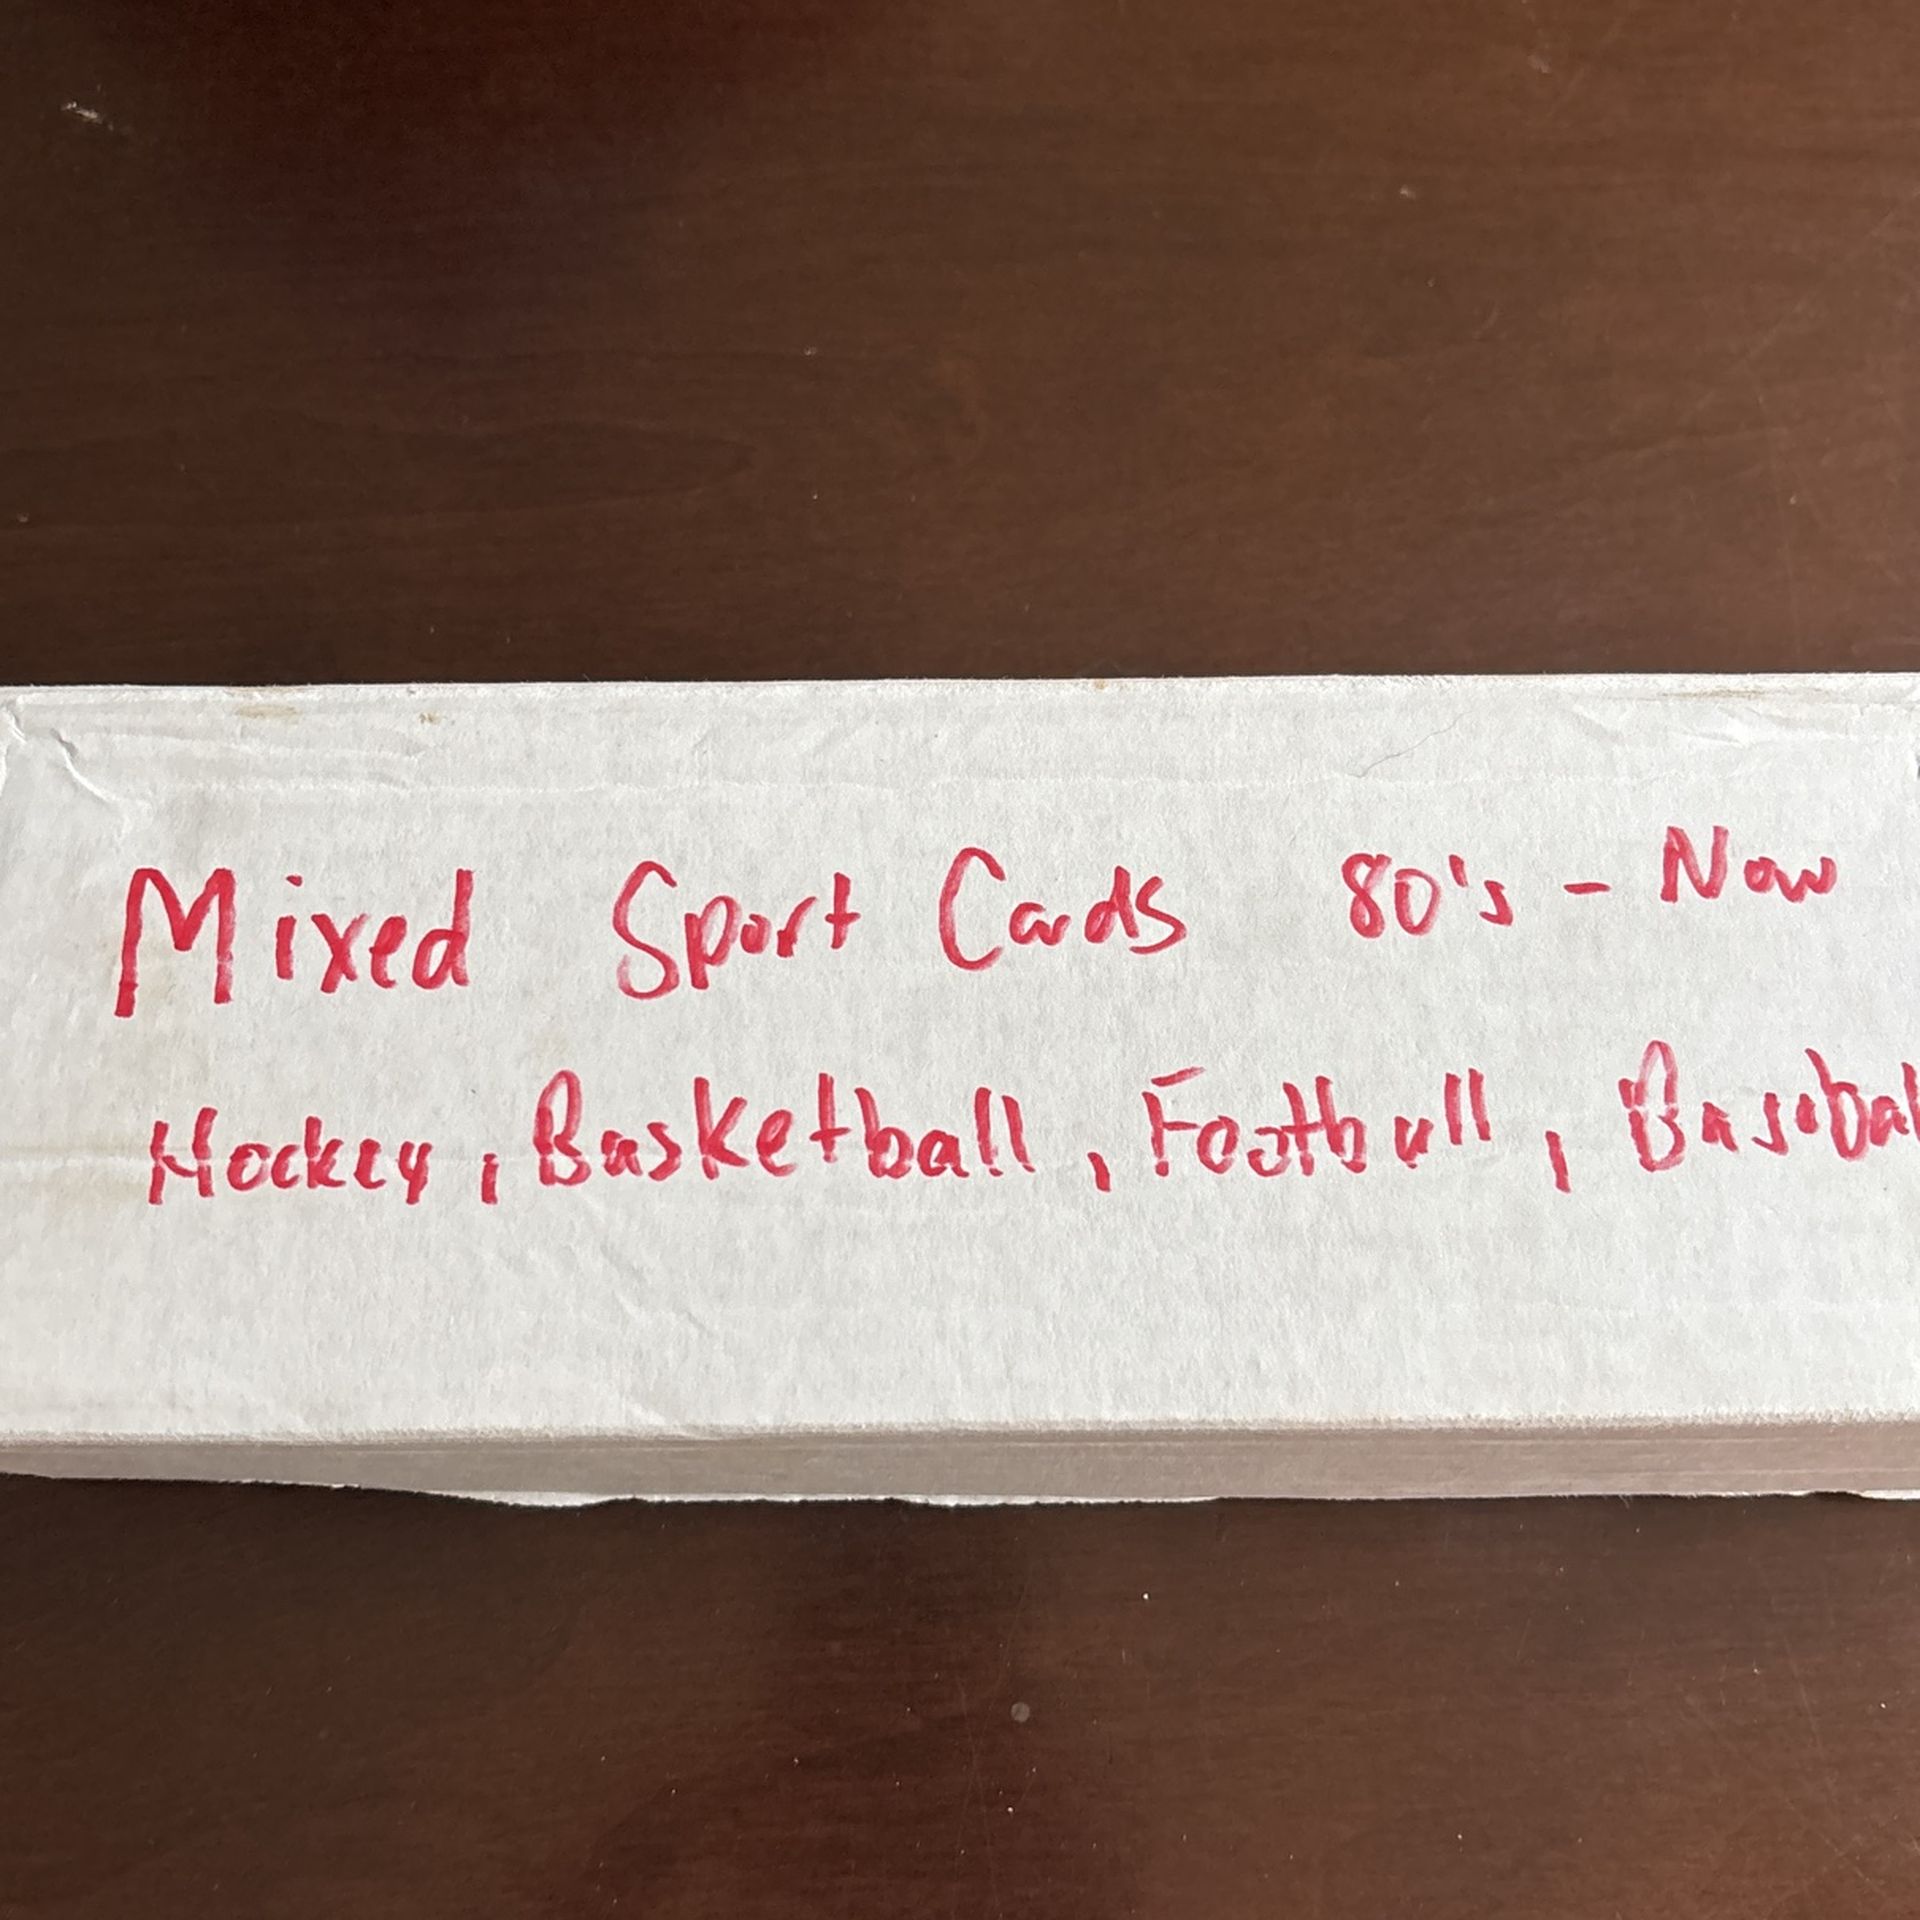 Mixed Sport Cards 80's - Now
Hockey, Basketball, Football, Basebal